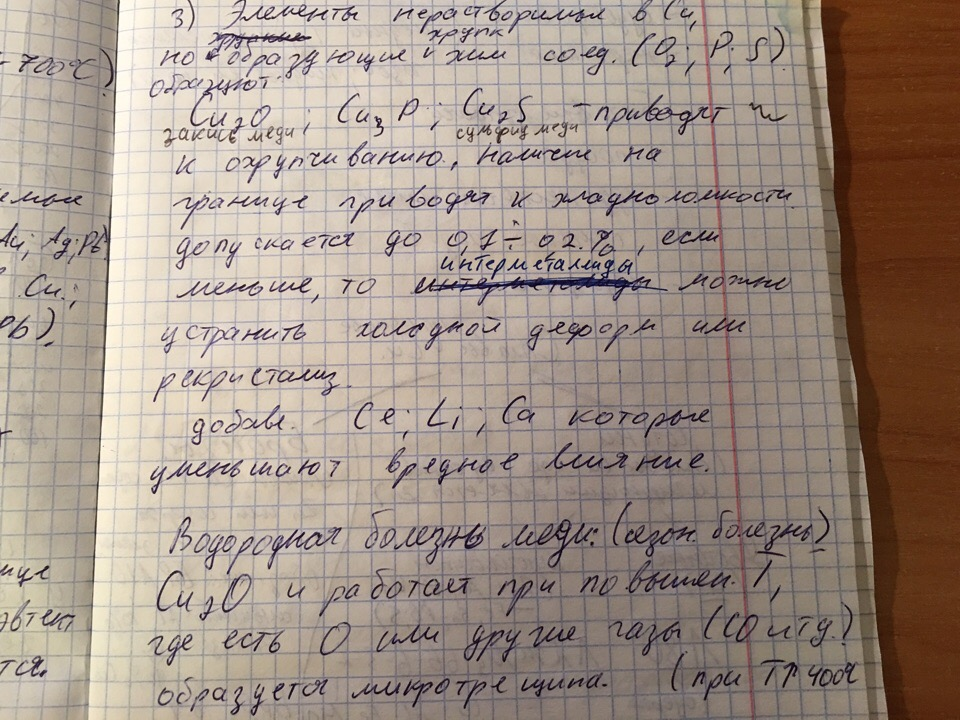 3) Элементы нерастворимые в Cu,
хрупк
но образующие хим соед. (O2; P; S).
образуют:
Cu2O ; Cu3P ; Cu2S – приводят
закись меди сульфид меди
к охрупчиванию, наличие на
границе приводят к хладноломкости.
допускается до 0,1 ÷ 02.%, если
интерметаллиды
меньше, то можно
устранить холодной деформ или
рекристализ.
добавл. Ce; Li; Ca которые
уменьшают вредное влияние.
Водородная болезнь меди: (сезон. болезнь)
Cu2O и работает при повышен. T,
где есть O или другие газы (CO и тд.)
образуется микротрещина. (при TP 400°
- 700°C)
Au; Ag; Pb
Cu.;
Pb).
эвтект
тся.